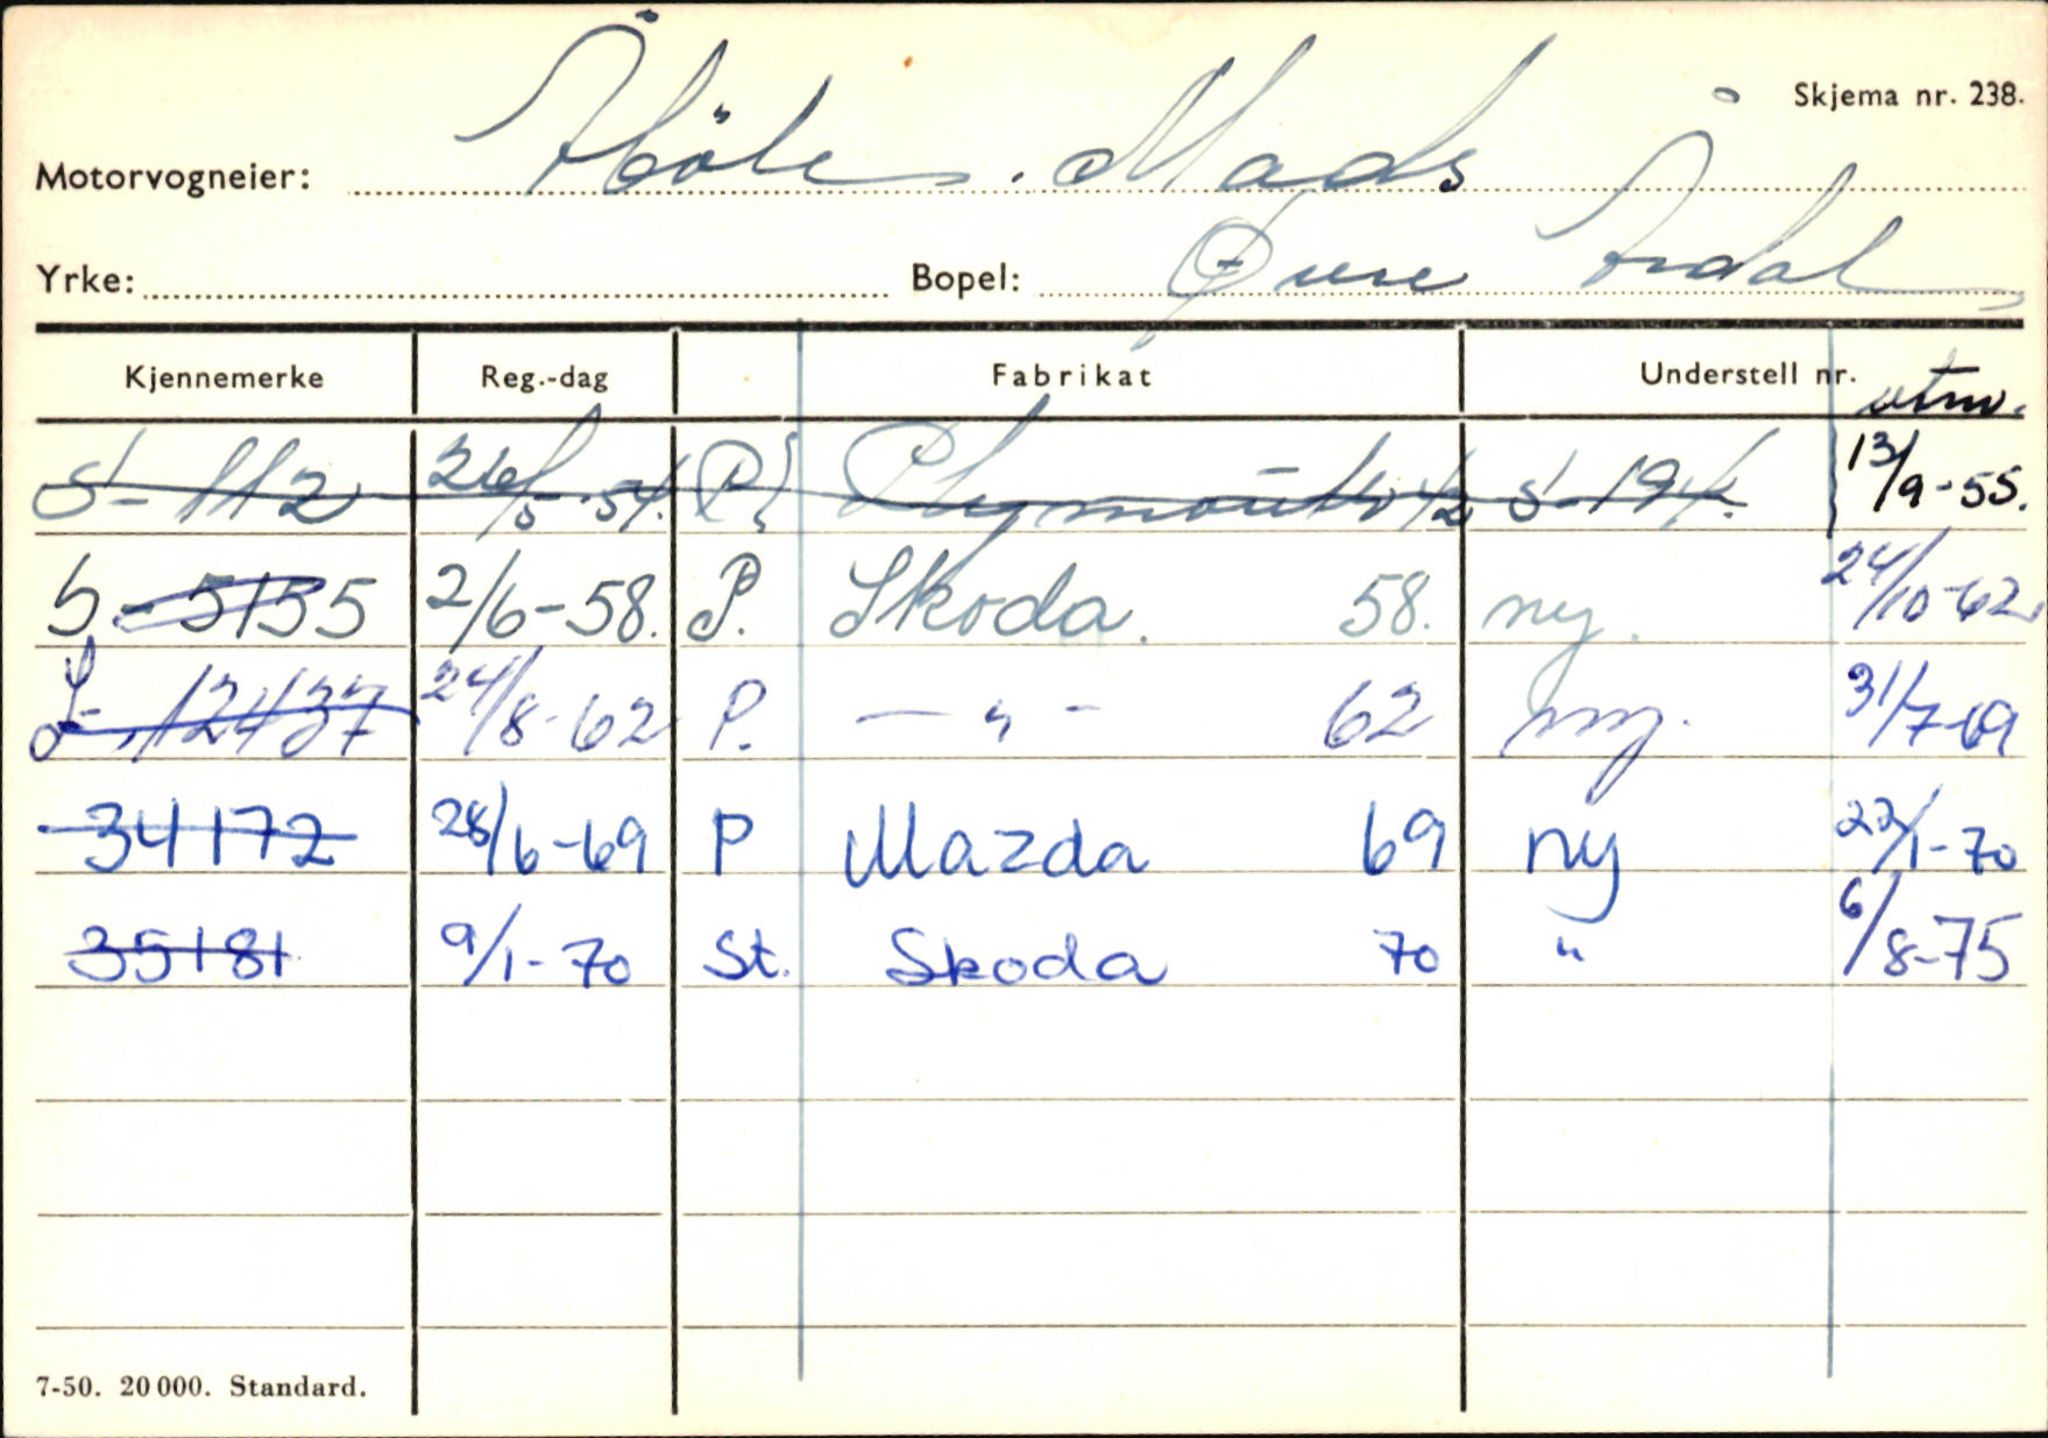 Skjema nr. 238.
Motorvogneier: Höle. Mads
Yrke: Bopel: Øvre Årdal
Kjennemerke Reg.-dag Fabrikat Understell nr. utm.
S-112 26/5-54. P. Plymouth 42 S-194. 13/9-55.
S-5135 2/6-58. P. Skoda. 58. ny. 24/10-62.
S-12437 24/8-62 P. — " - 62 ny. 31/7-69
34172 28/6-69 P Mazda 69 ny 22/1-70
35181 9/1-70 St. Skoda 70 " 6/8-75
7-50. 20 000. Standard.